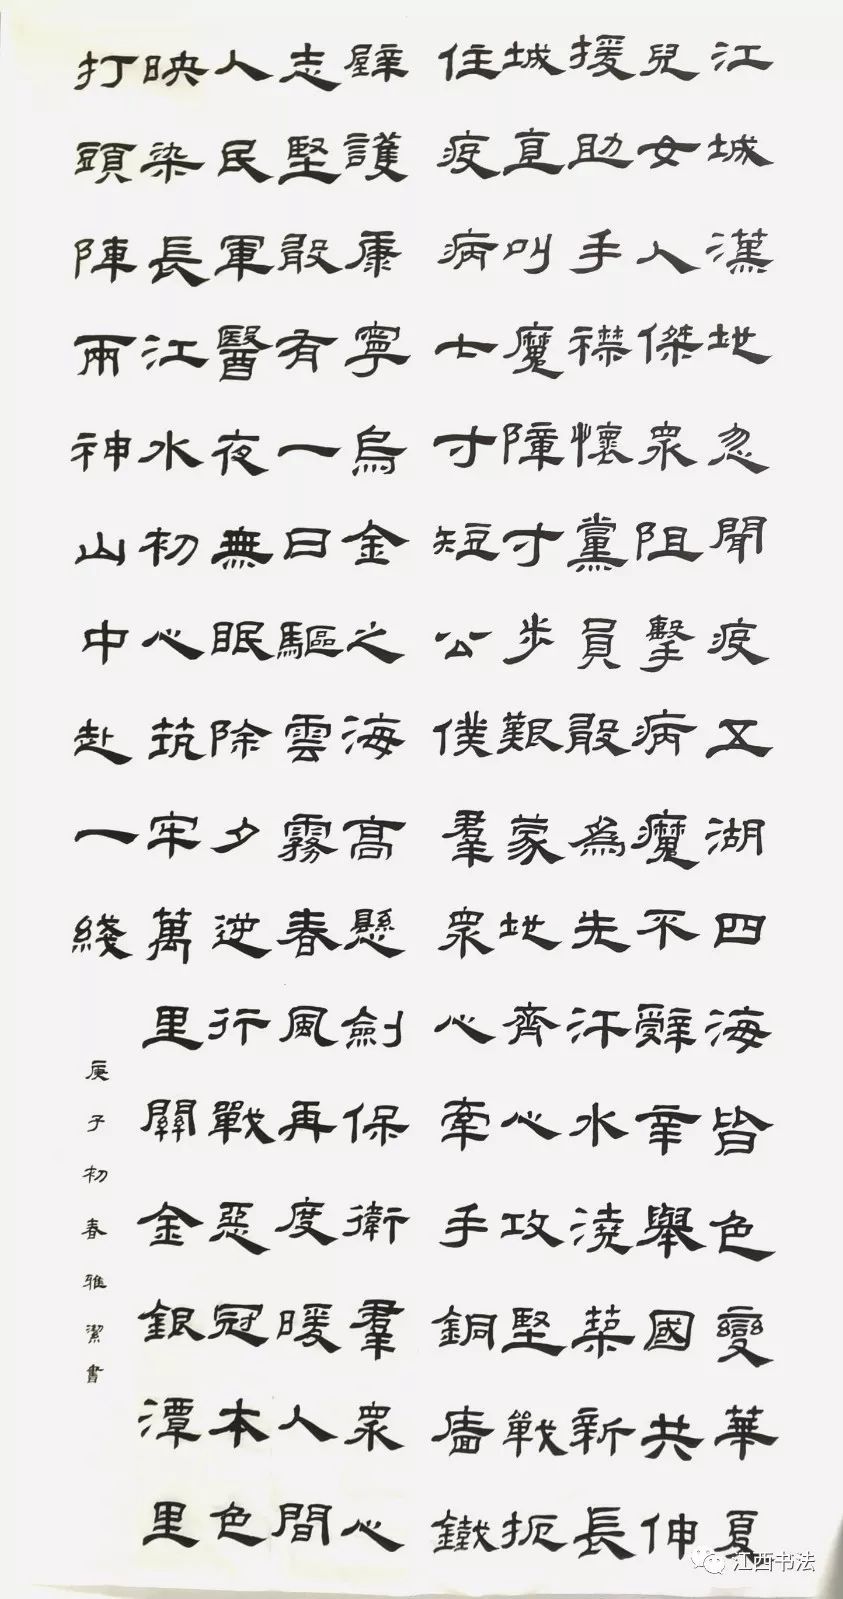 江城漢地忽聞疫五湖四海皆色變華夏
兒女人傑衆阻擊病魔不辭辛舉國共伸
援助手襟懷黨員敢為先汗水澆築新長
城直叫魔障寸步艱蒙地齊心攻堅戰扼
住疫病七寸短公僕羣衆心牽手銅墻鐵
壁護康寧烏金之海高懸劍保衛羣衆心
志堅敢有一日驅雲霧春風再度暖人間
人民軍醫夜無眠除夕逆行戰惡冠本色
映染長江水初心筑牢萬里關金銀潭里
打頭陣兩神山中赴一綫
庚子初春雅潔書
江西书法